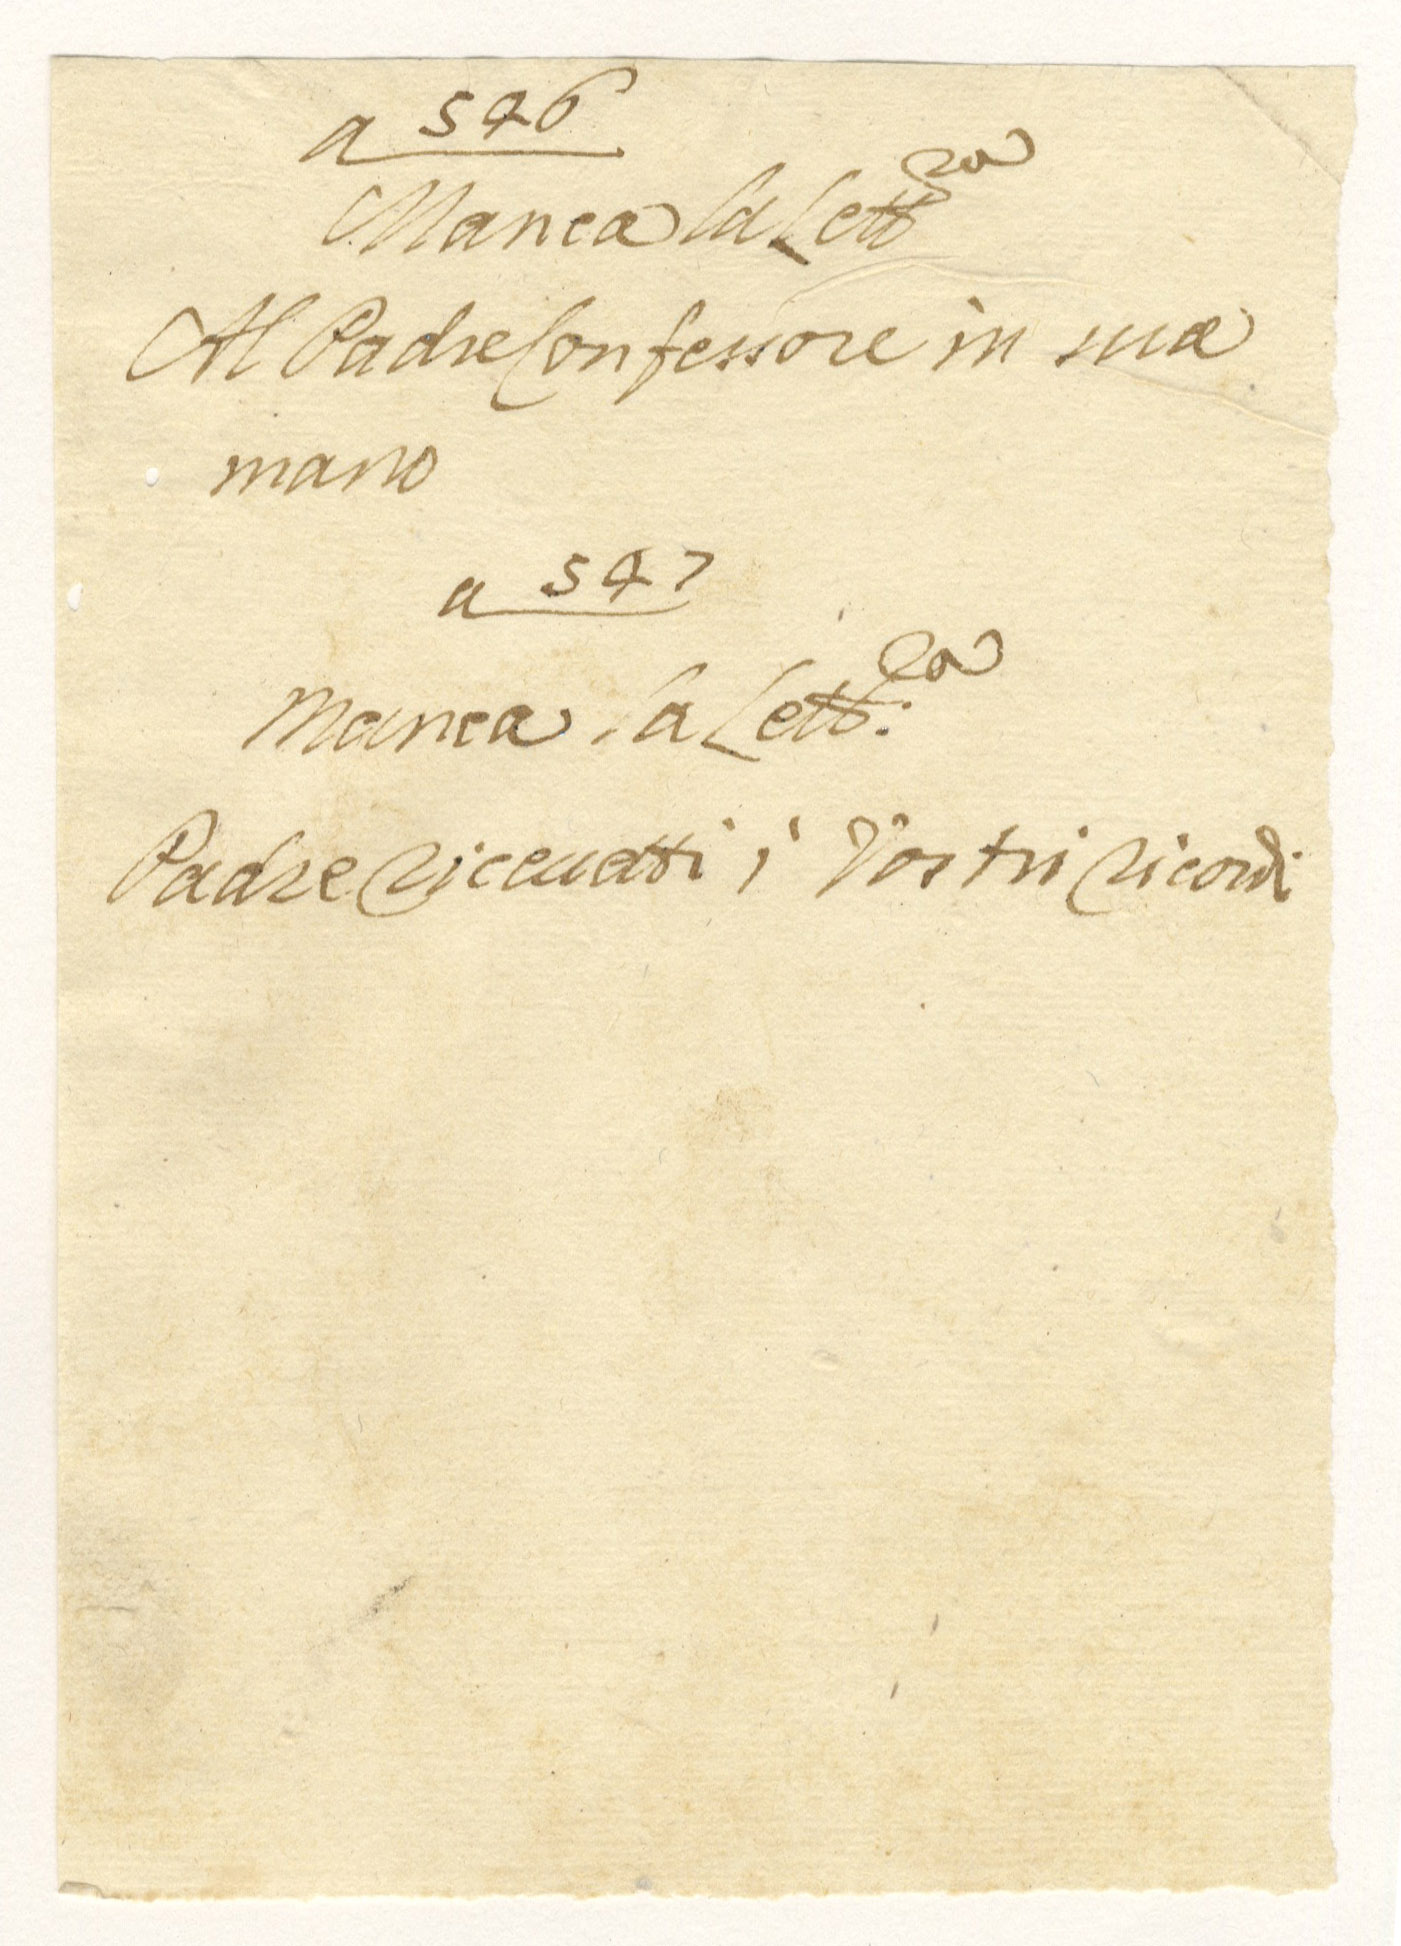 a 546
Manca la Lettra
Al Padre Confessore in sua
mano
a 547
Manca la Lettra:
Padre riceuetti i Vostri ricordi